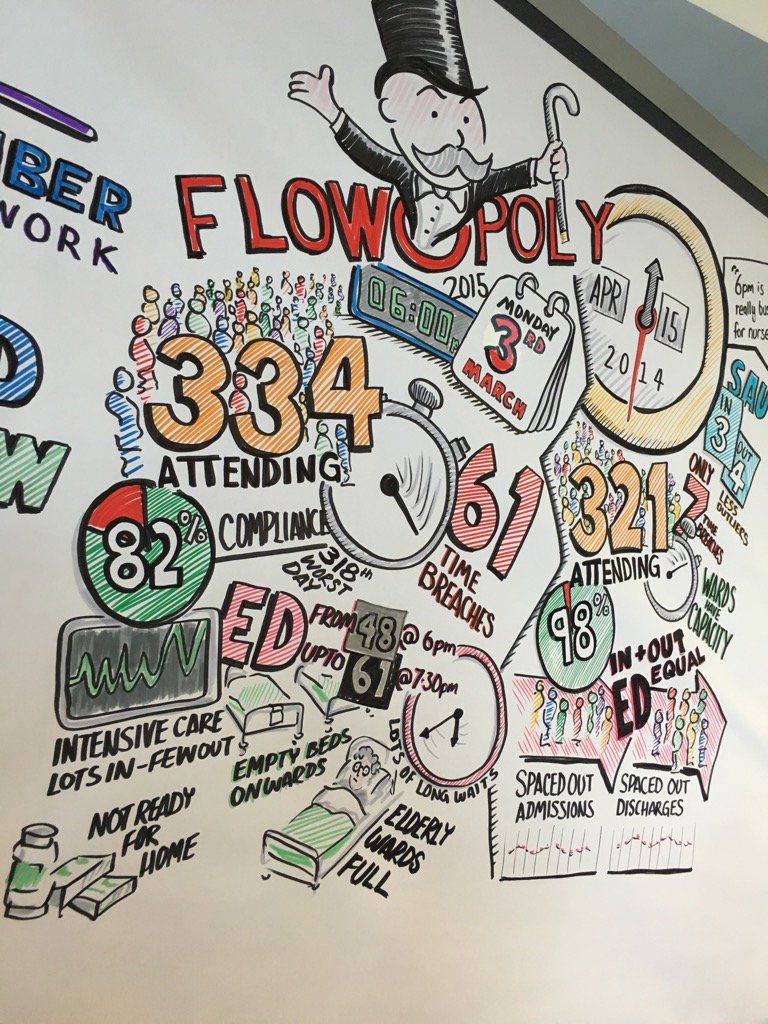 BER
WORK
D
W
FLOWOPOLY
2015
06:00
MONDAY
3RD
MARCH
APR
15
2014
"6pm is
really bus
for nurse
334
ATTENDING
82%
COMPLIANCE
318th
WORST
DAY
61
TIME
BREACHES
ED
FROM 48 @ 6pm
UPTO 61 @ 7:30pm
LOTS OF LONG WAITS
INTENSIVE CARE
LOTS IN-FEW OUT
EMPTY BEDS
ON WARDS
NOT READY
FOR
HOME
ELDERLY
WARDS
FULL
321
ATTENDING
ONLY
2
TIME
BREACHES
SAU
IN
3
OUT
4
LESS
OUTLIERS
WARDS
HAVE
CAPACITY
98%
IN + OUT
ED EQUAL
SPACED OUT
ADMISSIONS
SPACED OUT
DISCHARGES